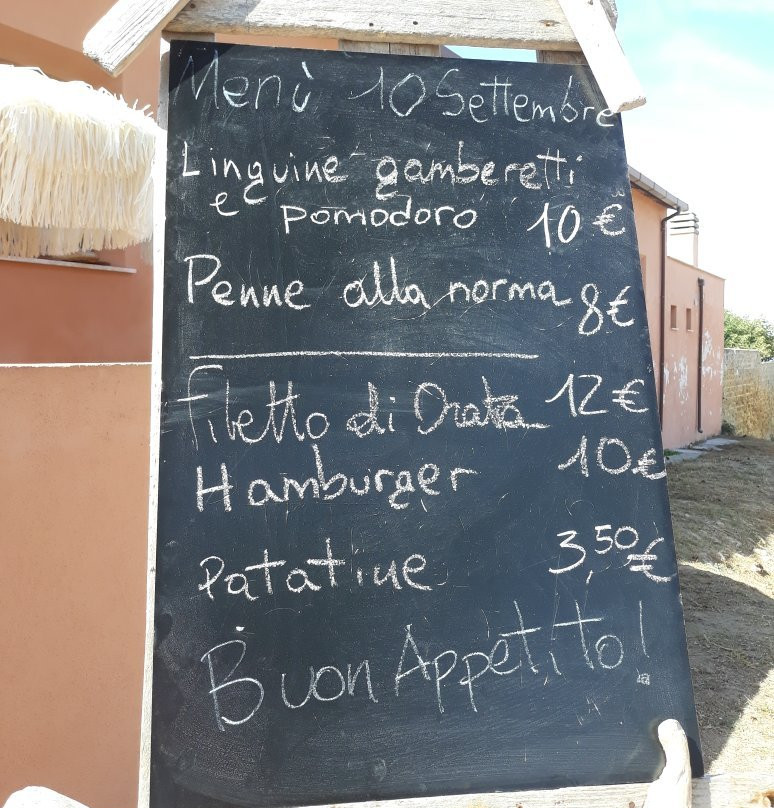 Menù 10 Settembre
Linguine gamberetti
e pomodoro 10 €
Penne alla norma 8€
Filetto di Orata 12€
Hamburger 10€
Patatine 3,50€
Buon Appetito!